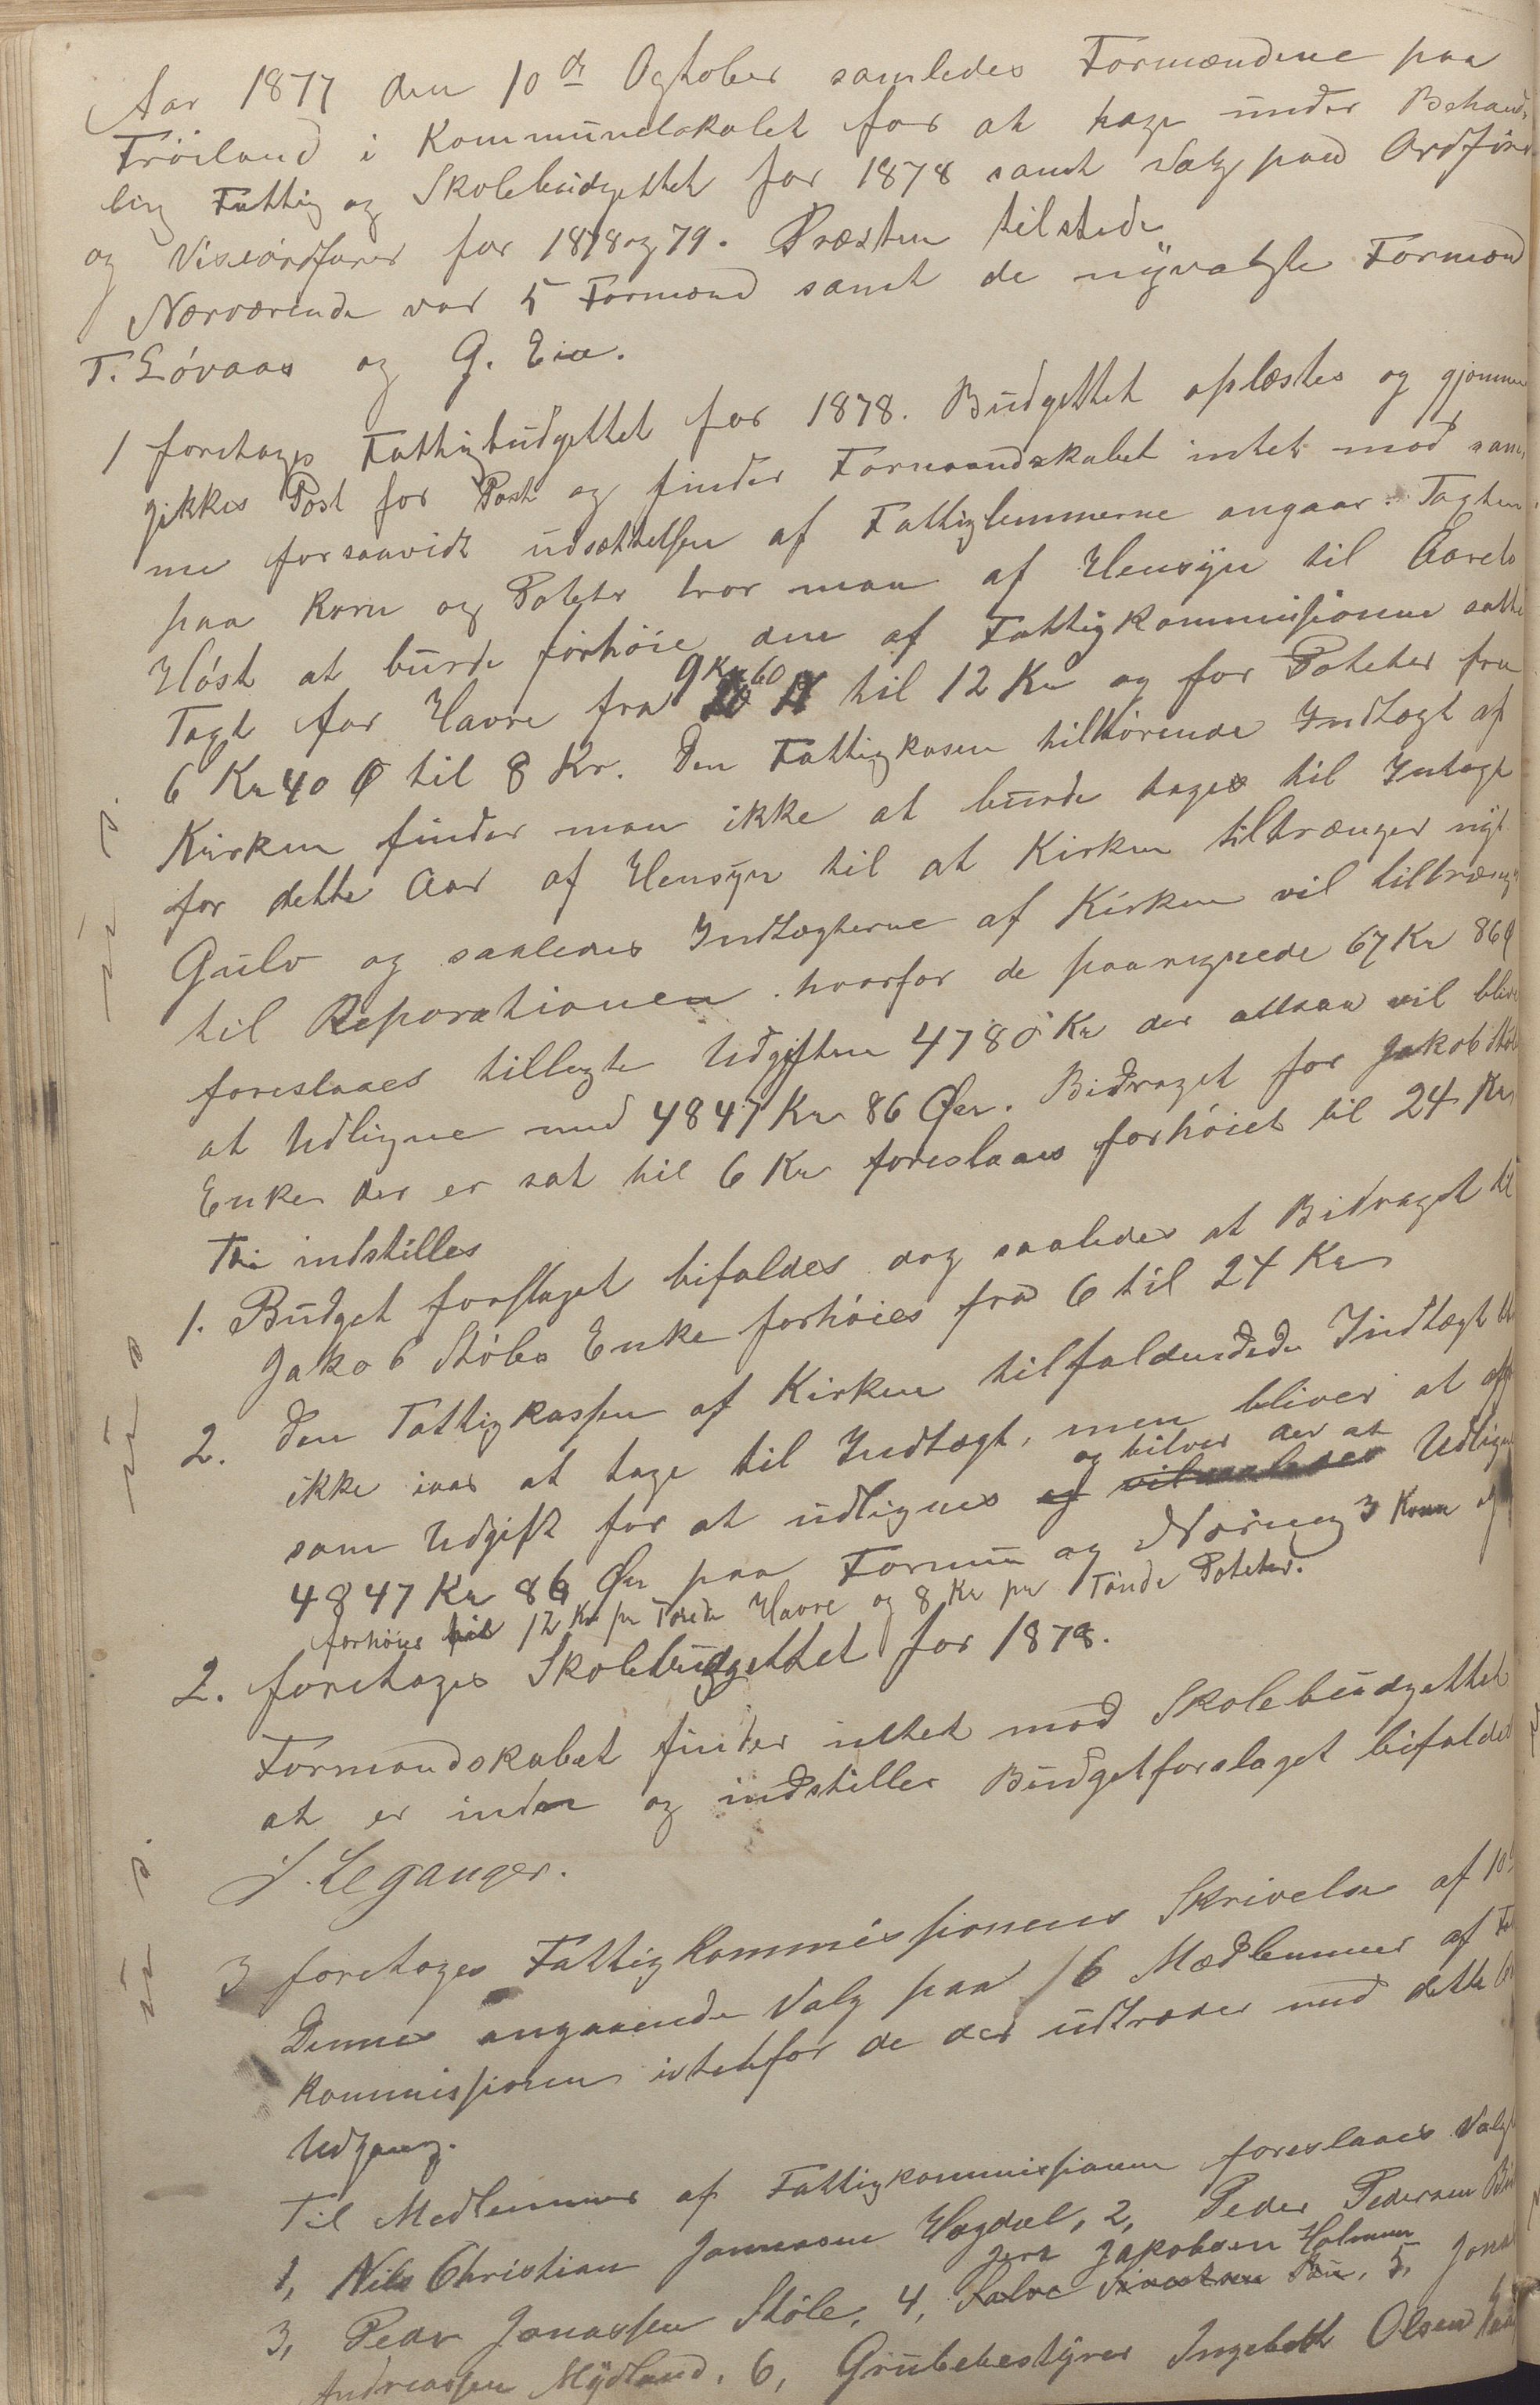 Aar 1877 den 10de Ogtober samledes Formændene paa
Fröiland i Kommunelokalet for at tage under Behand-
ling Fattig og Skolebudgettet for 1878 samt Valg paa Ordförer
og Viseordfører for 1878 og 79. Præsten tilstede
Nærværende var 5 Formænd samt de nyvalgte Formænd
T. Lövaas og G. Eia.
1 foretages Fattigbudgettet for 1878. Budgettet oplæstes og gjennem
gikkes Post for Post og finder Formandskabet intet mod sam-
me forsaavidt udsættelsen af Fattiglemmerne angaar. Tagten
paa Korn og Poteter tror man af Hensyn til Aarets
Höst at burde forhöie den af Fattigkommissionen satte
Tagt for Havre fra 9 Kr 60 til 12 Kr og for Poteter fra
6 Kr 40 Ø til 8 Kr. Den Fattigkasen tilhörende Indtægt af
Kirken finder man ikke at burde tages til Indtægt
for dette Aar af Hensyn til at Kirken tiltrænger nyt
Gulv og saaledes Indtægterne af Kirken vil tiltrænges
til Reparationen. hvorfor de paaregnede 67 Kr 86 Ø
foreslaaes tillagte Udgiften 4780 Kr der altsaa vil blive
at Udligne med 4847 Kr 86 Øre. Bidraget for Jakob Stöle
Enke der er sat til 6 Kr foreslaaes forhöiet til 24 Kr
Thi indstilles
1. Budget forslaget bifaldes dog saaledes at Bidraget til
Jakob Stöles Enke forhöies fra 6 til 24 Kr
2. Den Fattigkassen af Kirken tilfaldendede Indtægt
ikke iaar at tage til Indtægt, men bliver at
og bliver der at
som Udgift for at udlignes Udligne
4847 Kr 86 Øre paa Formue og Næring 3 Korn
forhöies til 12 Kr pr Tønde Havre og 8 Kr pr Tönde Poteter.
2. foretages Skolebudgettet for 1878.
Formandskabet finder intet mod Skolebudgettet
at er inden og indstilles Budgetforslaget bifaldet
S. Leganger.
3 foretages Fattigkommissionens Skrivelse af 10de
Dennes angaaende Valg paa 6 Medlemmer af
kommissionen istedetfor de der udtræder med dette
Udgang.
Til Medlemmer af Fattigkommissionen foreslaaes Valgt
1, Nils Christian Jonassen Hogdal, 2, Peder Pedersen
Jens Jakobsen Holmen
3, Peder Jonassen Stöle, 4, Salve 5, Jonas
Andreassen Mydland, 6, Grubebestyrer Ingebret Olsen